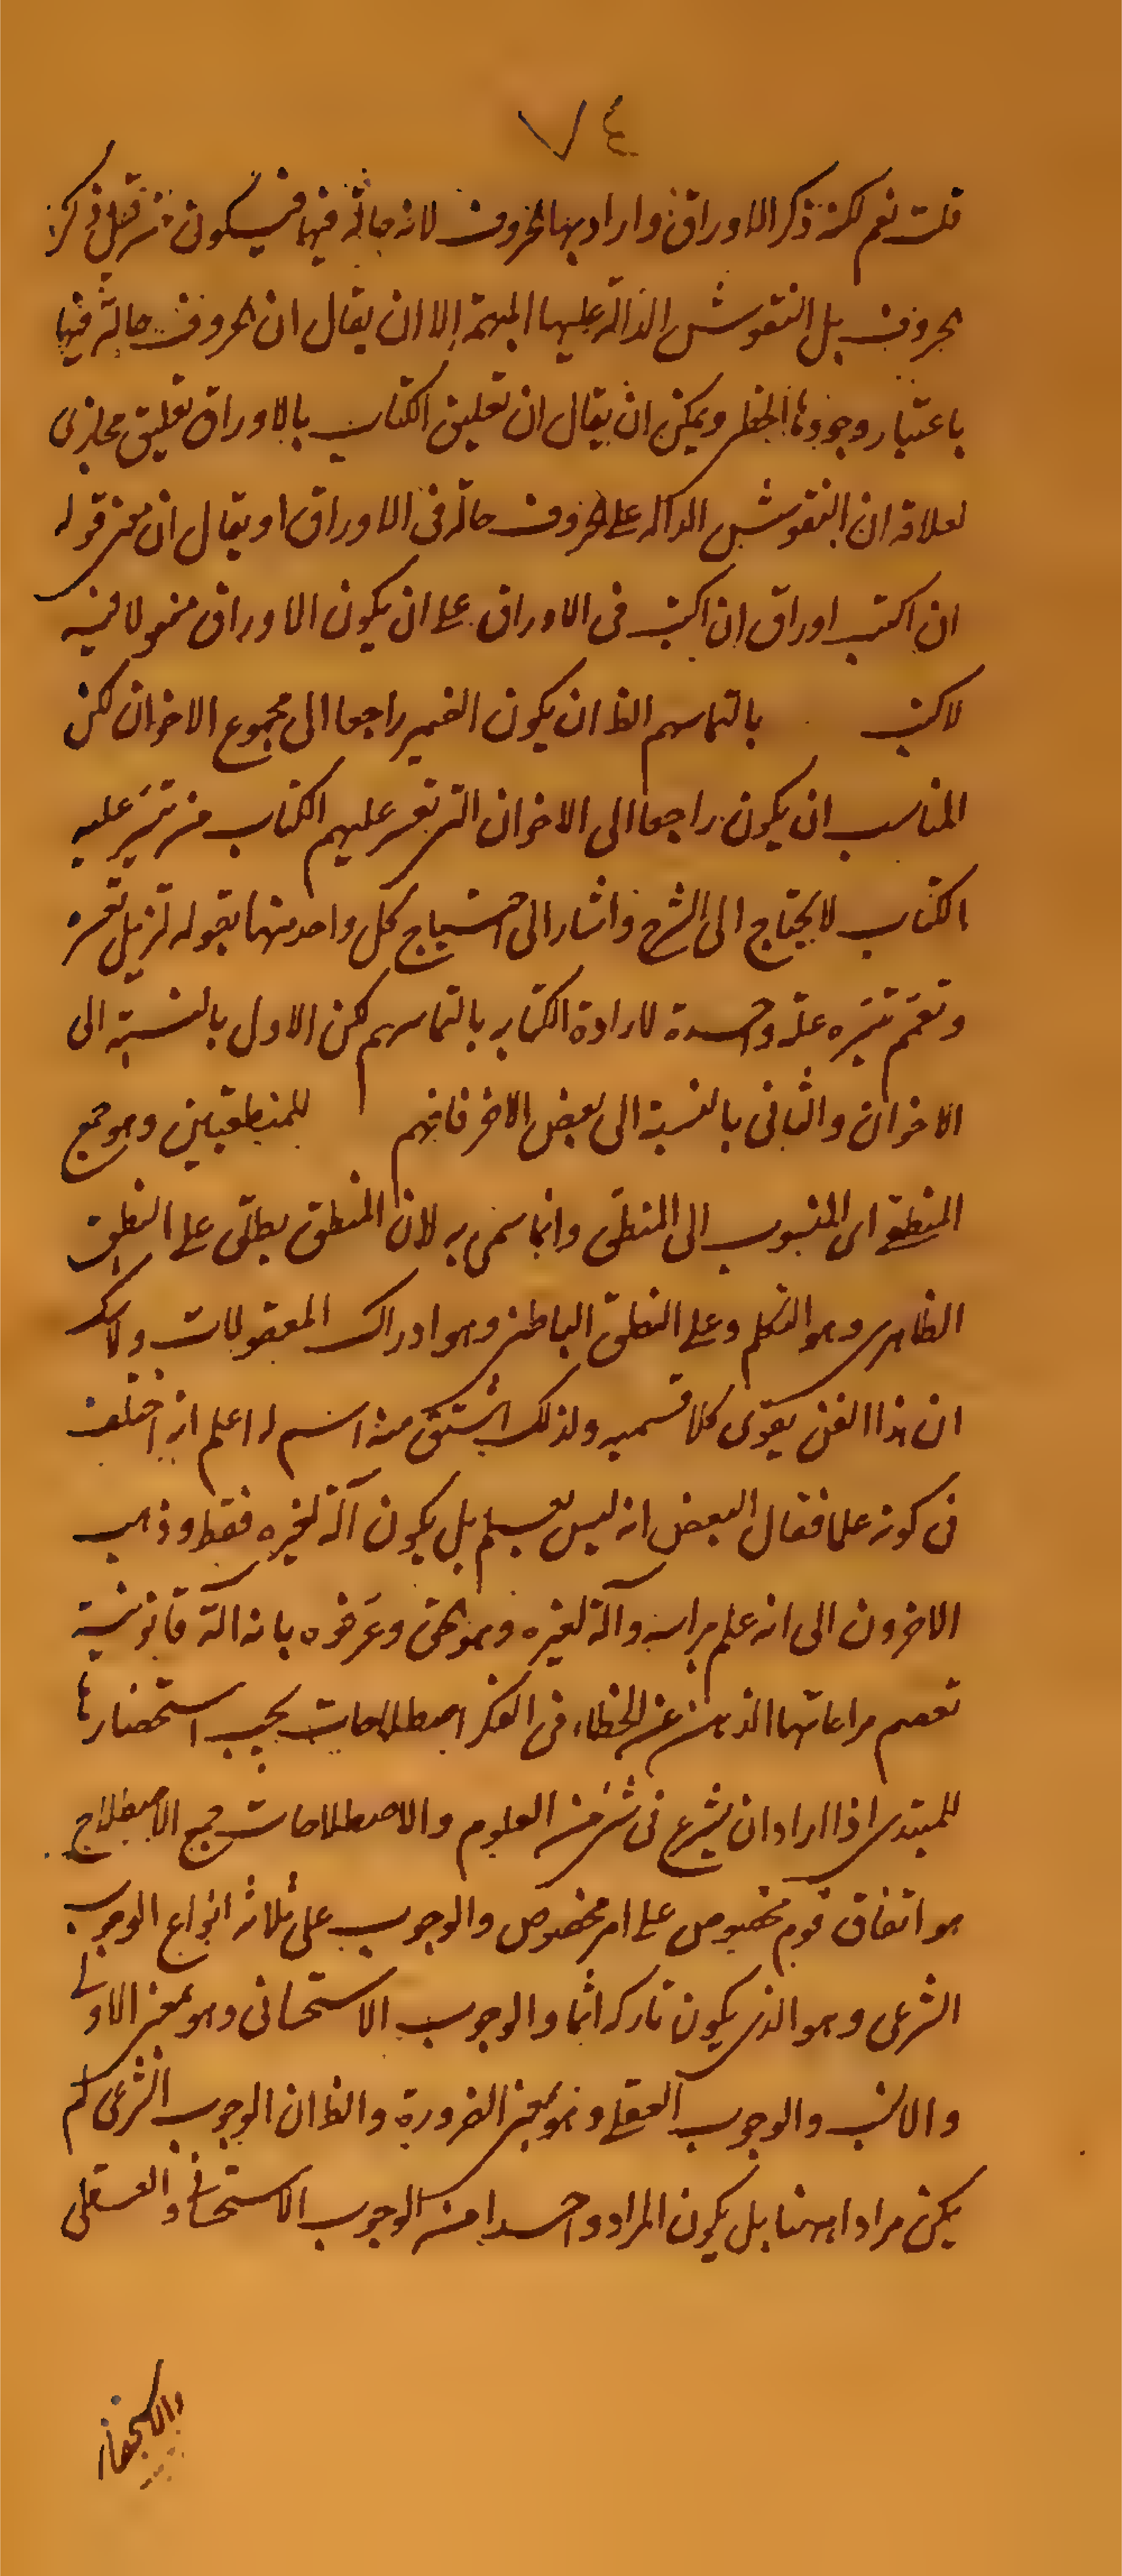 ٧٤
قلت نعم لكنه ذكر الاوراق واراد بها الحروف لانه حالة فيها فيكون من قبيل ذكر
الحروف بل النقوش الدالة عليها المبهمة الا ان يقال ان الحروف حالة فيها
باعتبار وجودها الخطى ويمكن ان يقال ان تعليق الكتاب بالاوراق تعليق مجازى
لعلاقه ان النقوش الداله على الحروف حالة فى الاوراق او يقال ان معنى قوله
ان اكتب اوراق ان اكتب فى الاوراق على ان يكون الاوراق مفعولا فيه
لاكتب بالتماسهم الظ ان يكون الضمير راجعا الى مجموع الاخوان لكن
المناسب ان يكون راجعا الى الاخوان التى تعسر عليهم الكتاب من تيسر عليه
الكتاب لا يحتاج الى الشرح واشار الى احتياج كل واحد منهما بقوله تزيل تعسره
وتعمم تيسره علة واحدة لارادة الكتابه بالتماسهم لكن الاول بالنسبة الى
الاخوان والثانى بالنسبة الى بعض الاخر فافهم للمنطقيين وهو جمع
المنطقى اى المنسوب الى المنطق وانما سمى به لان المنطق يطلق على النطق
الظاهرى وهو التكلم وعلى النطق الباطنى وهو ادراك المعقولات ولا شك
ان هذا الفن يقوى كلا قسميه ولذلك اشتق منه اسم له اعلم انه اختلف
فى كونه علما فقال البعض انه ليس بعلم بل يكون آلة لغيره فقط وذهب
الاخرون الى انه علم براسه وآلة لغيره وهو الحق وعرفوه بانه آلة قانونية
تعصم مراعاتها الذهن عن الخطاء فى الفكر اصطلاحات يجب استحضارها
للمبتدى اذا اراد ان يشرع فى شئ من العلوم والاصطلاحات جمع الاصطلاح
هو اتفاق قوم مخصوص على امر مخصوص والوجوب على ثلاثه انواع الوجوب
الشرعى وهو الذى يكون تاركه اثما والوجوب الاستحسانى وهو بمعنى الاولى
والانسب والوجوب العقلى وهو بمعنى الضرورة والظ ان الوجوب الشرعى لم
يكن مرادا ههنا بل يكون المراد واحدا من الوجوب الاستحسانى والعقلى